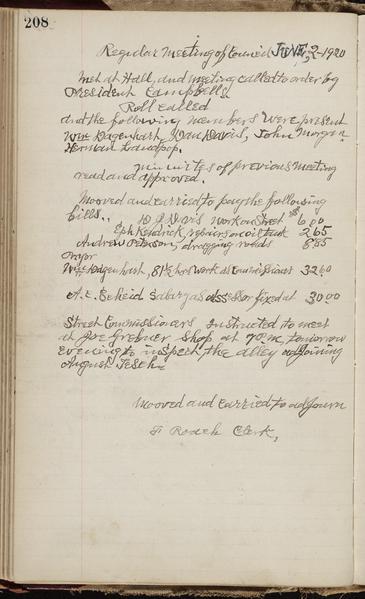 208
Regular Meeting of Council JUNE, 2-1920
Met at Hall, and meeting called to order by
President Campbell.
Roll called
and the following members were present
Wm Hagenhart, Dan Davis, John Morgan
Herman
Minuites of previous meeting
read and approved.
Mooved and carried to pay the following
bills. D J Davis work on Street 6 00
Eph Kendrick, repairs on oil tank 2 65
Andrew Peterson, dragging roads 8 85
Wm Hagenhart, 81½ hrs work as Commissioner 32 60
A. E. Scheid Salary as assessor fixed at 30 00
Street Commissioners instructed to meet
at Joe Grebner Shop at 7 P.M. tomorrow
evening to inspect the alley adjoining
August
Mooved and Carried to adjourn
F Roach Clerk,